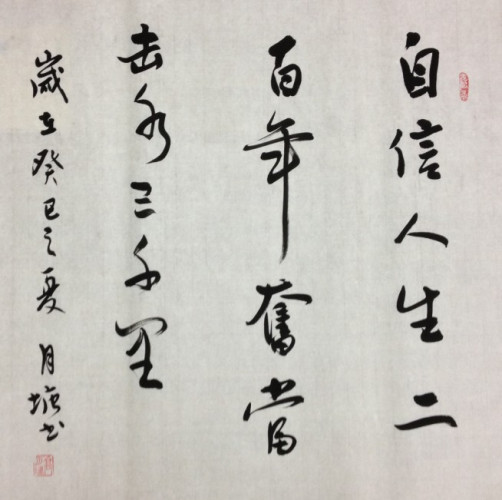 自信人生二
百年奮當
击水三千里
歲在癸巳之夏 月塘书